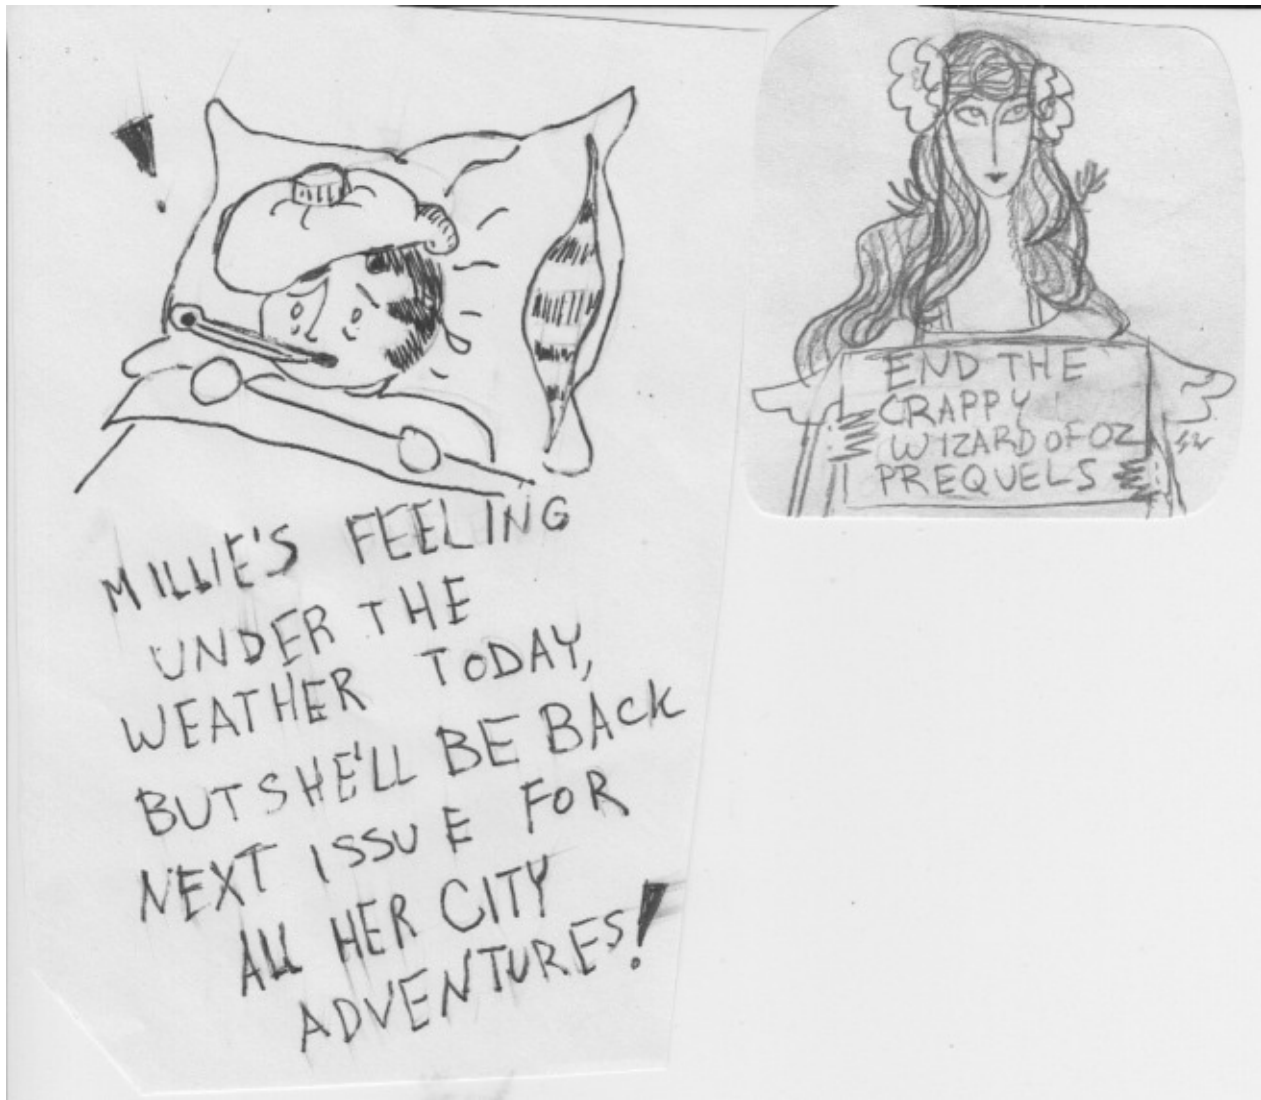 MILLIE'S FEELING
UNDER THE
WEATHER TODAY,
BUT SHE'LL BE BACK
NEXT ISSUE FOR
ALL HER CITY
ADVENTURES!
END THE
CRAPPY
WIZARD OF OZ
PREQUELS